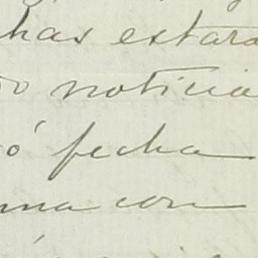 has estara
noticia
ó fecha
ma con